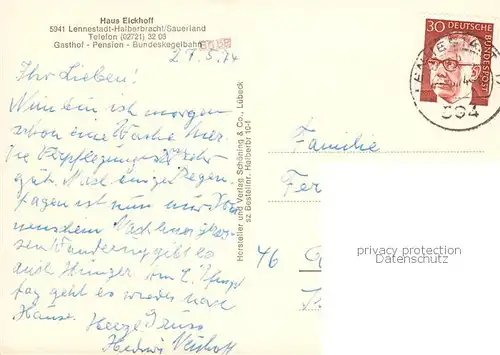 Haus Eickhoff
5941 Lennestadt-Halberbracht/Sauerland
Telefon (02721) 32 08
Gasthof - Pension - Bundeskegelbahn
27.5.74
Ihr Lieben!
Nun bin ich morgen
schon eine Woche hier.
Die Verpflegung ist sehr
gut. Nach einigen Regen-
tagen ist nun nur
wandern
Wanderung gibt es
auch Hunger. Am 2. Pfingst
tag geht es wieder nach
Hause. Herzl. Gruss
Hersteller und Verlag Schöning & Co., Lübeck
sz Bestellnr. Halberbr 10-f
30 DEUTSCHE BUNDESPOST
LENNESTADT
594
Familie
Fer
46
privacy protection
Datenschutz